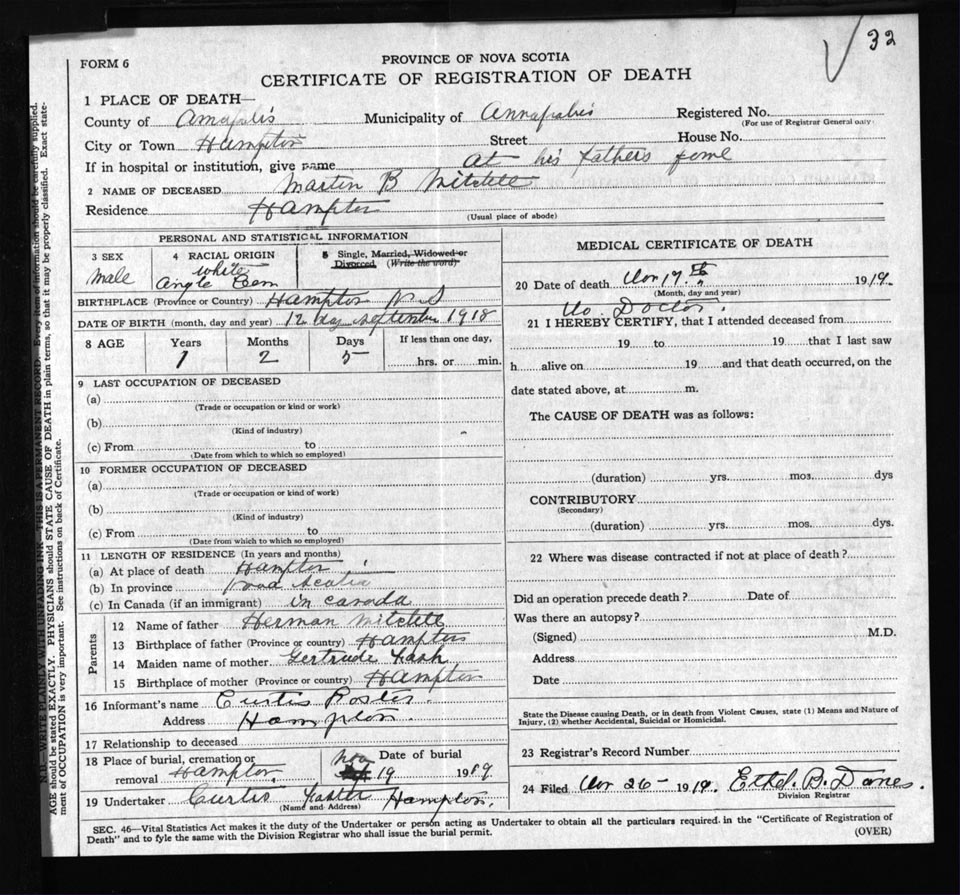 32
FORM 6
PROVINCE OF NOVA SCOTIA
CERTIFICATE OF REGISTRATION OF DEATH
1 PLACE OF DEATH—
County of Annapolis Municipality of Annapolis Registered No.
(For use of Registrar General only)
City or Town Hampton Street House No.
If in hospital or institution, give name At his Fathers home
2 NAME OF DECEASED Martin B Mitchell
Residence Hampton
(Usual place of abode)
PERSONAL AND STATISTICAL INFORMATION
3 SEX 4 RACIAL ORIGIN 5 Single, Married, Widowed or Divorced (Write the word)
male white
Angle
BIRTHPLACE (Province or Country) Hampton N S
DATE OF BIRTH (month, day and year) 12 day September 1918
8 AGE Years Months Days If less than one day,
1 2 5 hrs. or min.
9 LAST OCCUPATION OF DECEASED
(a)
(Trade or occupation or kind or work)
(b)
(Kind of industry)
(c) From to
(Date from which to which so employed)
10 FORMER OCCUPATION OF DECEASED
(a)
(Trade or occupation or kind of work)
(b)
(Kind of industry)
(c) From to
(Date from which to which so employed)
11 LENGTH OF RESIDENCE (In years and months)
(a) At place of death Hampton
(b) In province
(c) In Canada (if an immigrant) in canada
Parents
12 Name of father Herman Mitchell
13 Birthplace of father (Province or country) Hampton
14 Maiden name of mother Gertrude
15 Birthplace of mother (Province or country) Hampton
16 Informant's name Curtis Foster
Address Hampton.
17 Relationship to deceased
18 Place of burial, cremation or removal Hampton. Date of burial Nov 19 1919
19 Undertaker Curtis Foster Hampton.
(Name and Address)
MEDICAL CERTIFICATE OF DEATH
20 Date of death Nov 17th 1919.
(Month, day and year)
No Doctor.
21 I HEREBY CERTIFY, that I attended deceased from
19 to 19 that I last saw
h alive on 19 and that death occurred, on the
date stated above, at m.
The CAUSE OF DEATH was as follows:
(duration) yrs. mos. dys
CONTRIBUTORY
(Secondary)
(duration) yrs. mos. dys.
22 Where was disease contracted if not at place of death?
Did an operation precede death? Date of
Was there an autopsy?
(Signed) M.D.
Address
Date
State the Disease causing Death, or in death from Violent Causes, state (1) Means and Nature of
Injury, (2) whether Accidental, Suicidal or Homicidal.
23 Registrar's Record Number
24 Filed Nov 26- 1919. Ethel. B. Dane
Division Registrar
SEC. 46—Vital Statistics Act makes it the duty of the Undertaker or person acting as Undertaker to obtain all the particulars required in the "Certificate of Registration of
Death" and to fyle the same with the Division Registrar who shall issue the burial permit.
(OVER)
N.B.—WRITE PLAINLY WITH UNFADING INK—THIS IS A PERMANENT RECORD. Every item of information should be carefully supplied.
AGE should be stated EXACTLY. PHYSICIANS should STATE CAUSE OF DEATH in plain terms, so that it may be properly classified. Exact state-
ment of OCCUPATION is very important. See instructions on back of Certificate.